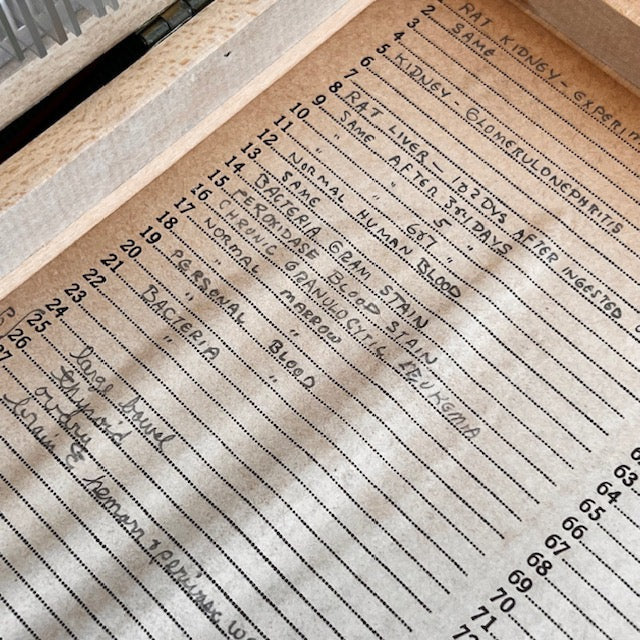 2 RAT KIDNEY - EXPERI
3 SAME
4
5
6 KIDNEY - GLOMERULONEPHRITIS
7
8 RAT LIVER - 12 DYS AFTER INGESTED
9 SAME AFTER 35 DAYS
10 " " 5 "
11 " " 667 "
12 NORMAL HUMAN BLOOD
13 SAME
14 BACTERIA GRAM STAIN
15 PEROXIDASE BLOOD STAIN
16 CHRONIC GRANULOCYTIC LEUKEMIA
17 NORMAL MARROW
18 " "
19 PERSONAL BLOOD
20 " "
21 BACTERIA
22
23
24 large bowel
25 Thyroid
26
27
63
64
65
66
67
68
69
70
71
72